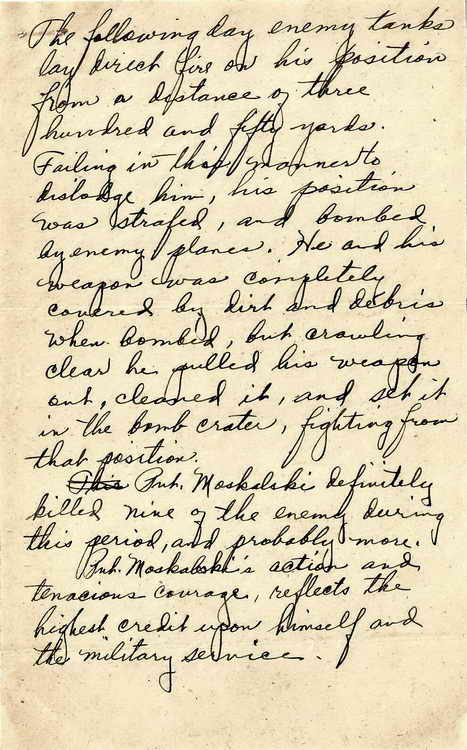 The following day enemy tanks
lay direct fire on his position
from a distance of three
hundred and fifty yards.
Failing in this manner to
dislodge him, his position
was strafed, and bombed
by enemy planes. He and his
weapon was completely
covered by dirt and debris
when bombed, but crawling
clear he pulled his weapon
out, cleaned it, and set it
in the bomb crater, fighting from
that position.
This Pvt. Moskalski definitely
killed nine of the enemy during
this period, and probably more.
Pvt. Moskalski's action and
tenacious courage, reflects the
highest credit upon himself and
the military service.